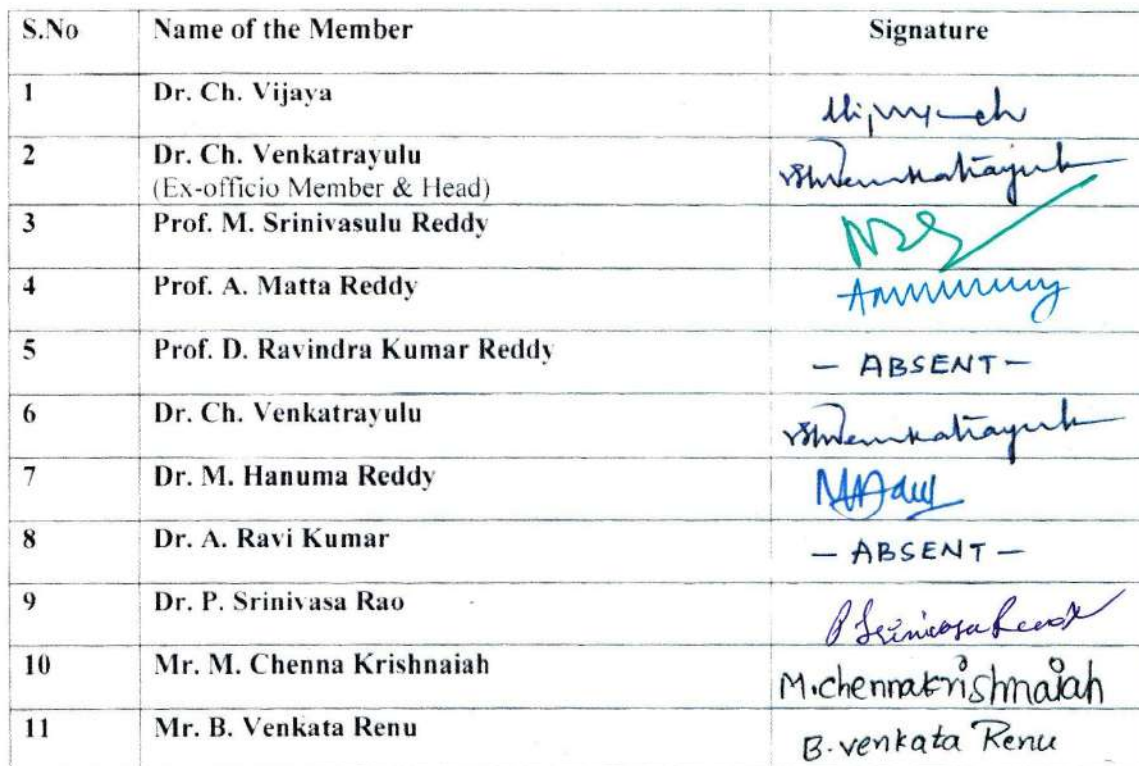 S.No Name of the Member Signature
1 Dr. Ch. Vijaya
2 Dr. Ch. Venkatrayulu
(Ex-officio Member & Head)
3 Prof. M. Srinivasulu Reddy
4 Prof. A. Matta Reddy
5 Prof. D. Ravindra Kumar Reddy – ABSENT –
6 Dr. Ch. Venkatrayulu
7 Dr. M. Hanuma Reddy
8 Dr. A. Ravi Kumar – ABSENT –
9 Dr. P. Srinivasa Rao
10 Mr. M. Chenna Krishnaiah M.chennakrishnaiah
11 Mr. B. Venkata Renu B.venkata Renu